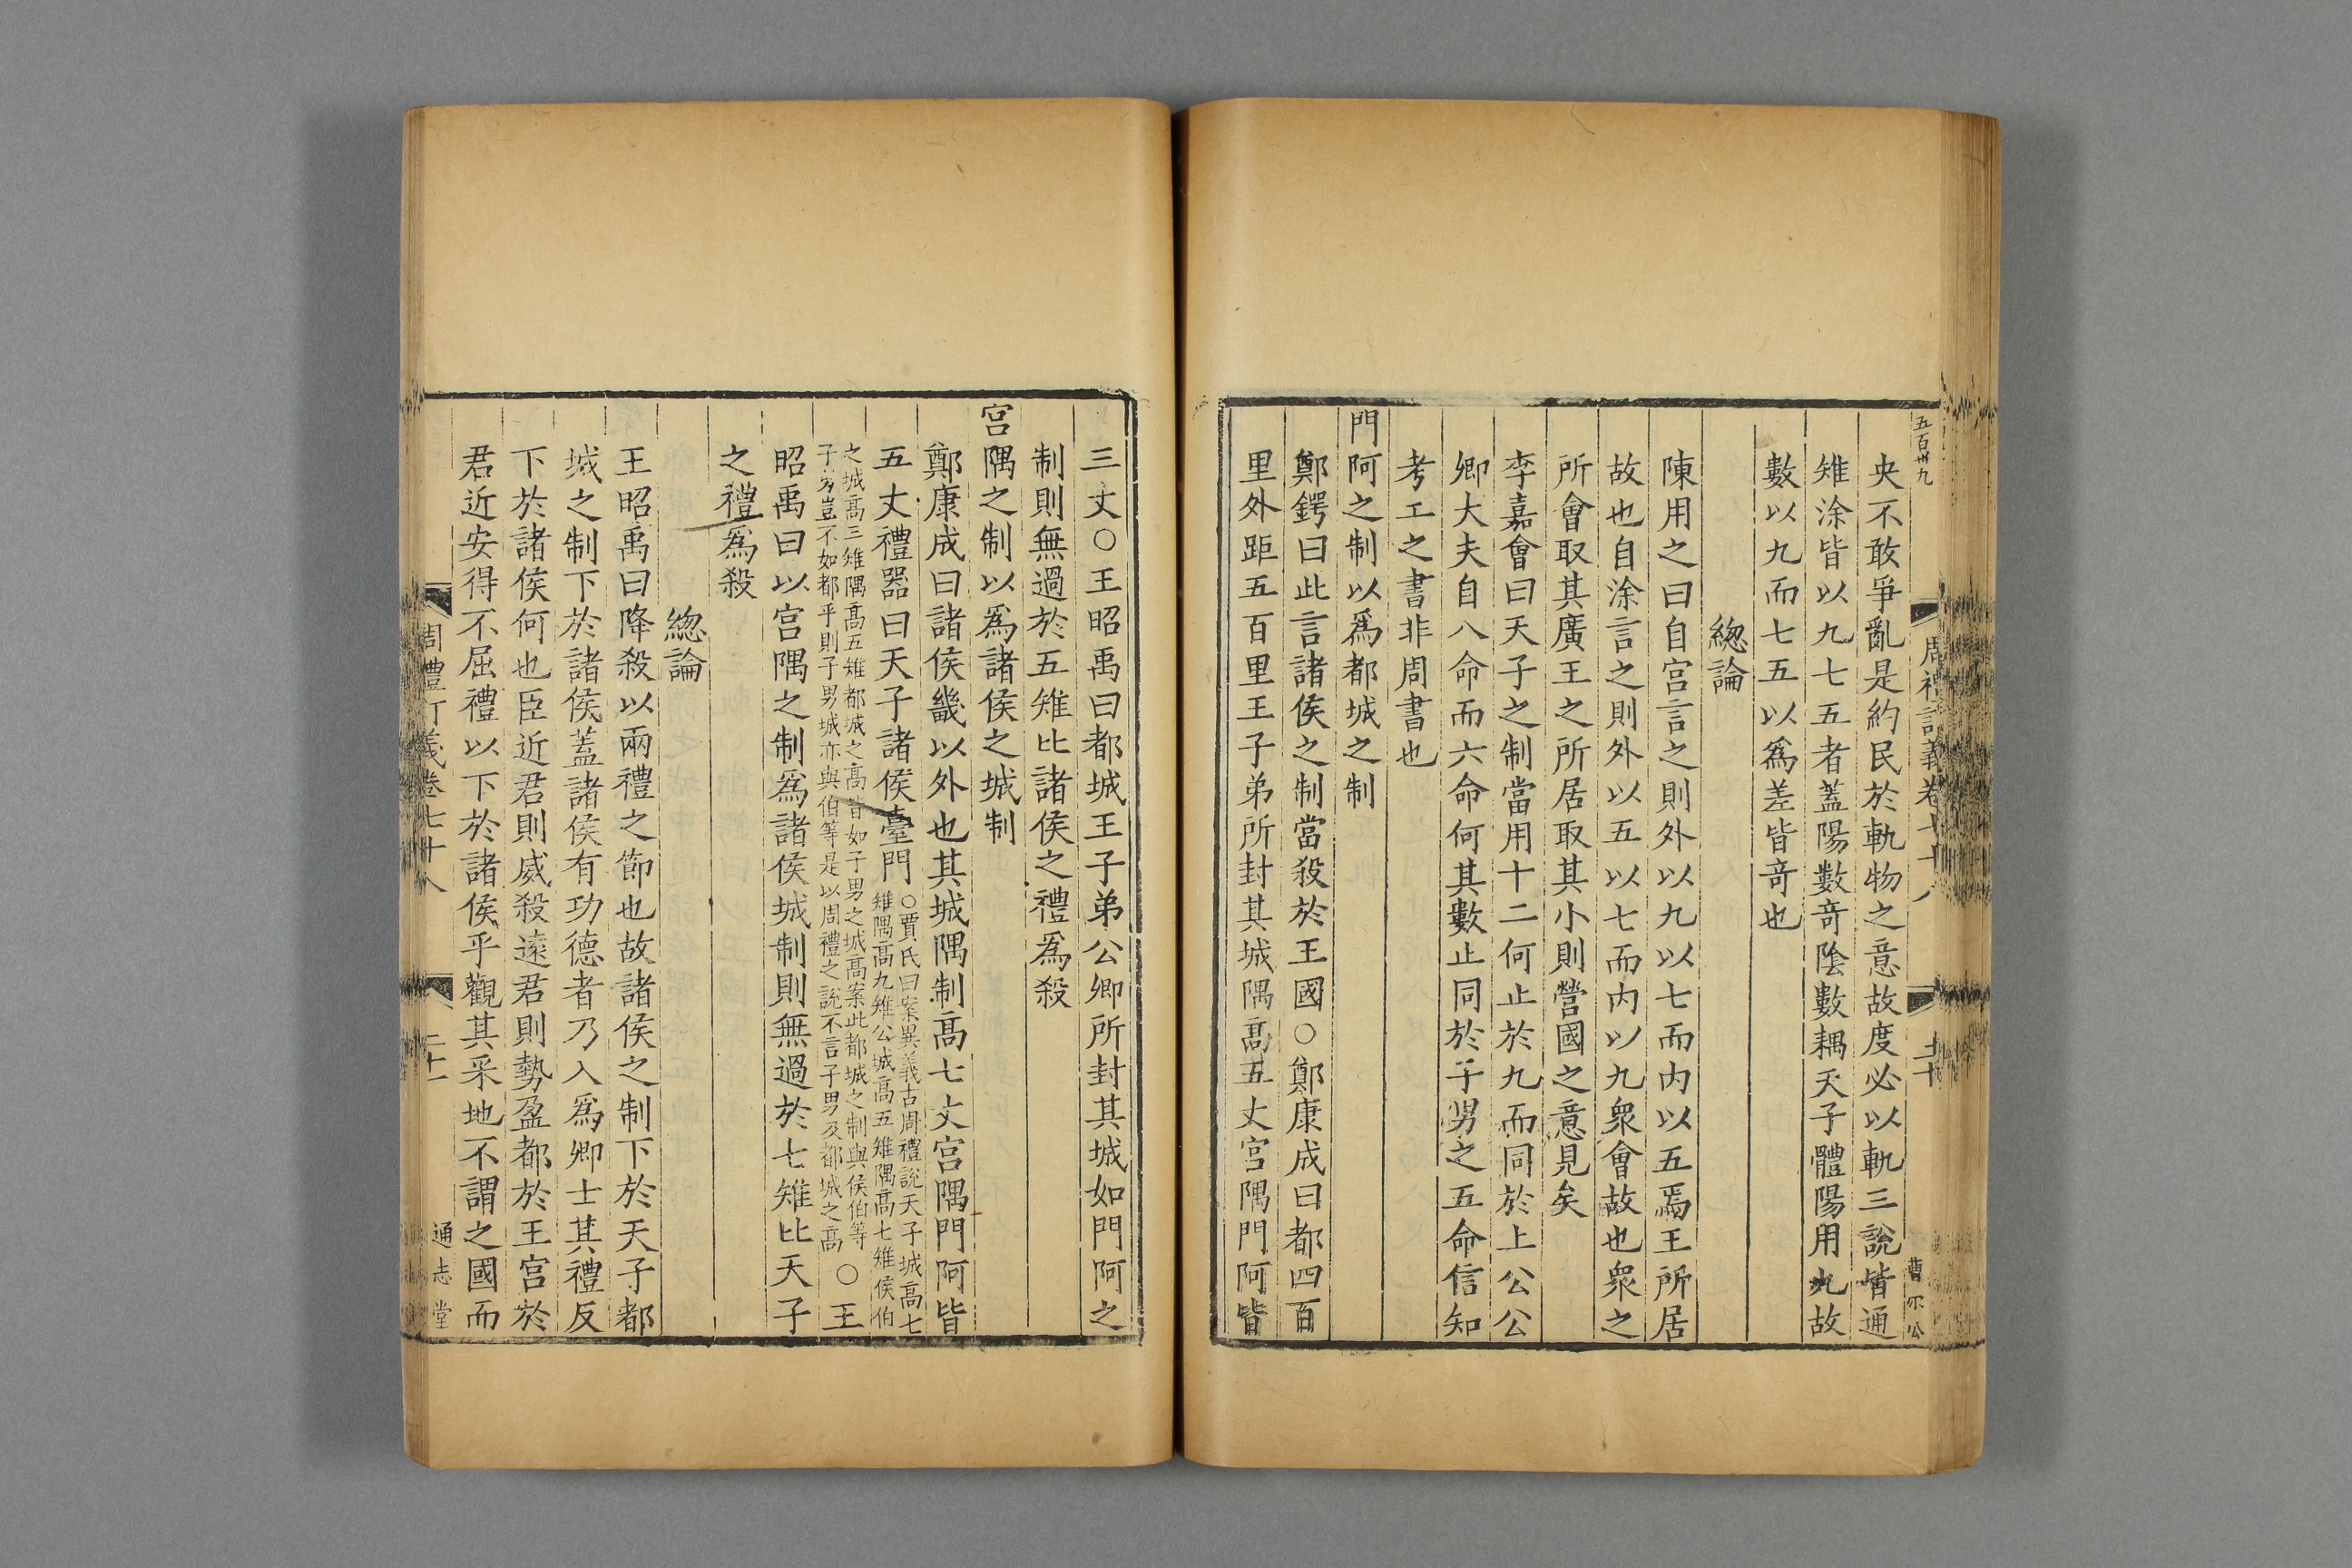 五百卅九
周禮訂義卷七十八
二十
央不敢爭亂是約民於軌物之意故度必以軌三說皆通
雉涂皆以九七五者蓋陽數竒陰數耦天子體陽用九故
數以九而七五以爲差皆竒也
總論
陳用之曰自宮言之則外以九以七而内以五焉王所居
故也自涂言之則外以五以七而内以九衆會故也衆之
所會取其廣王之所居取其小則營國之意見矣
李嘉會曰天子之制當用十二何止於九而同於上公公
卿大夫自八命而六命何其數止同於子男之五命信知
考工之書非周書也
門阿之制以爲都城之制
鄭鍔曰此言諸侯之制當殺於王國○鄭康成曰都四百
里外距五百里王子弟所封其城隅髙五丈宮隅門阿皆
三丈○王昭禹曰都城王子弟公卿所封其城如門阿之
制則無過於五雉比諸侯之禮爲殺
宮隅之制以爲諸侯之城制
鄭康成曰諸侯畿以外也其城隅制髙七丈宮隅門阿皆
五丈禮器曰天子諸侯臺門○賈氏曰案異義古周禮說天子城髙七
雉隅髙九雉公城髙五雉隅髙七雉侯伯
之城髙三雉隅髙五雉都城之髙皆如子男之城髙案此都城之制與侯伯等
子男豈不如都乎則子男城亦與伯等是以周禮之說不言子男及都城之髙○王
昭禹曰以宮隅之制爲諸侯城制則無過於七雉比天子
之禮爲殺
總論
王昭禹曰降殺以兩禮之節也故諸侯之制下於天子都
城之制下於諸侯蓋諸侯有功德者乃入爲卿士其禮反
下於諸侯何也臣近君則威殺遠君則勢盈都於王宮於
君近安得不屈禮以下於諸侯乎觀其采地不謂之國而
周禮訂義卷七十八
二十一
通志堂